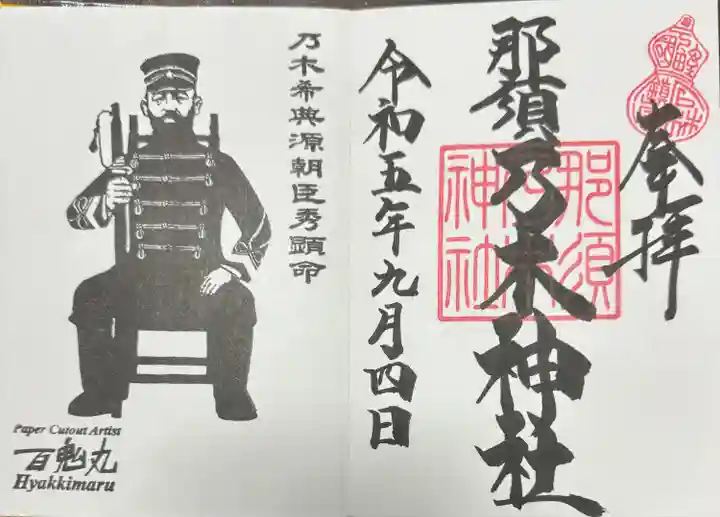 奉拝
那須乃木神社
那須
乃木
神社
令和五年九月四日
乃木希典源朝臣秀顕命
Paper Cutout Artist
百鬼丸
Hyakkimaru